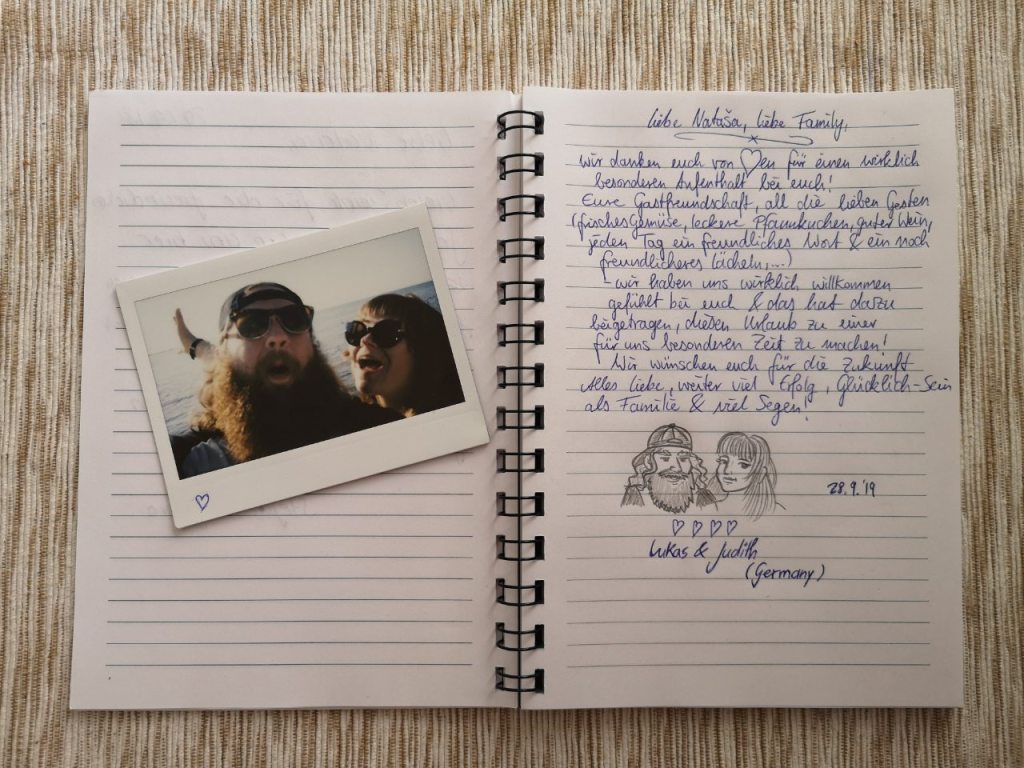 Liebe Nataša, liebe Family,
wir danken euch von ♡en für einen wirklich
besonderen Aufenthalt bei euch!
Eure Gastfreundschaft, all die lieben Gesten
(frisches Gemüse, leckere Pfannkuchen, guter Wein,
jeden Tag ein freundliches Wort & ein noch
freundlicheres Lächeln,...)
- wir haben uns wirklich willkommen
gefühlt bei euch & das hat dazu
beigetragen, diesen Urlaub zu einer
für uns besonderen Zeit zu machen!
Wir wünschen euch für die Zukunft
Alles Liebe, weiter viel Erfolg, Glücklich-Sein
als Familie & viel Segen!
28.9.'19
♡ ♡ ♡ ♡
Lukas & Judith
(Germany)
♡